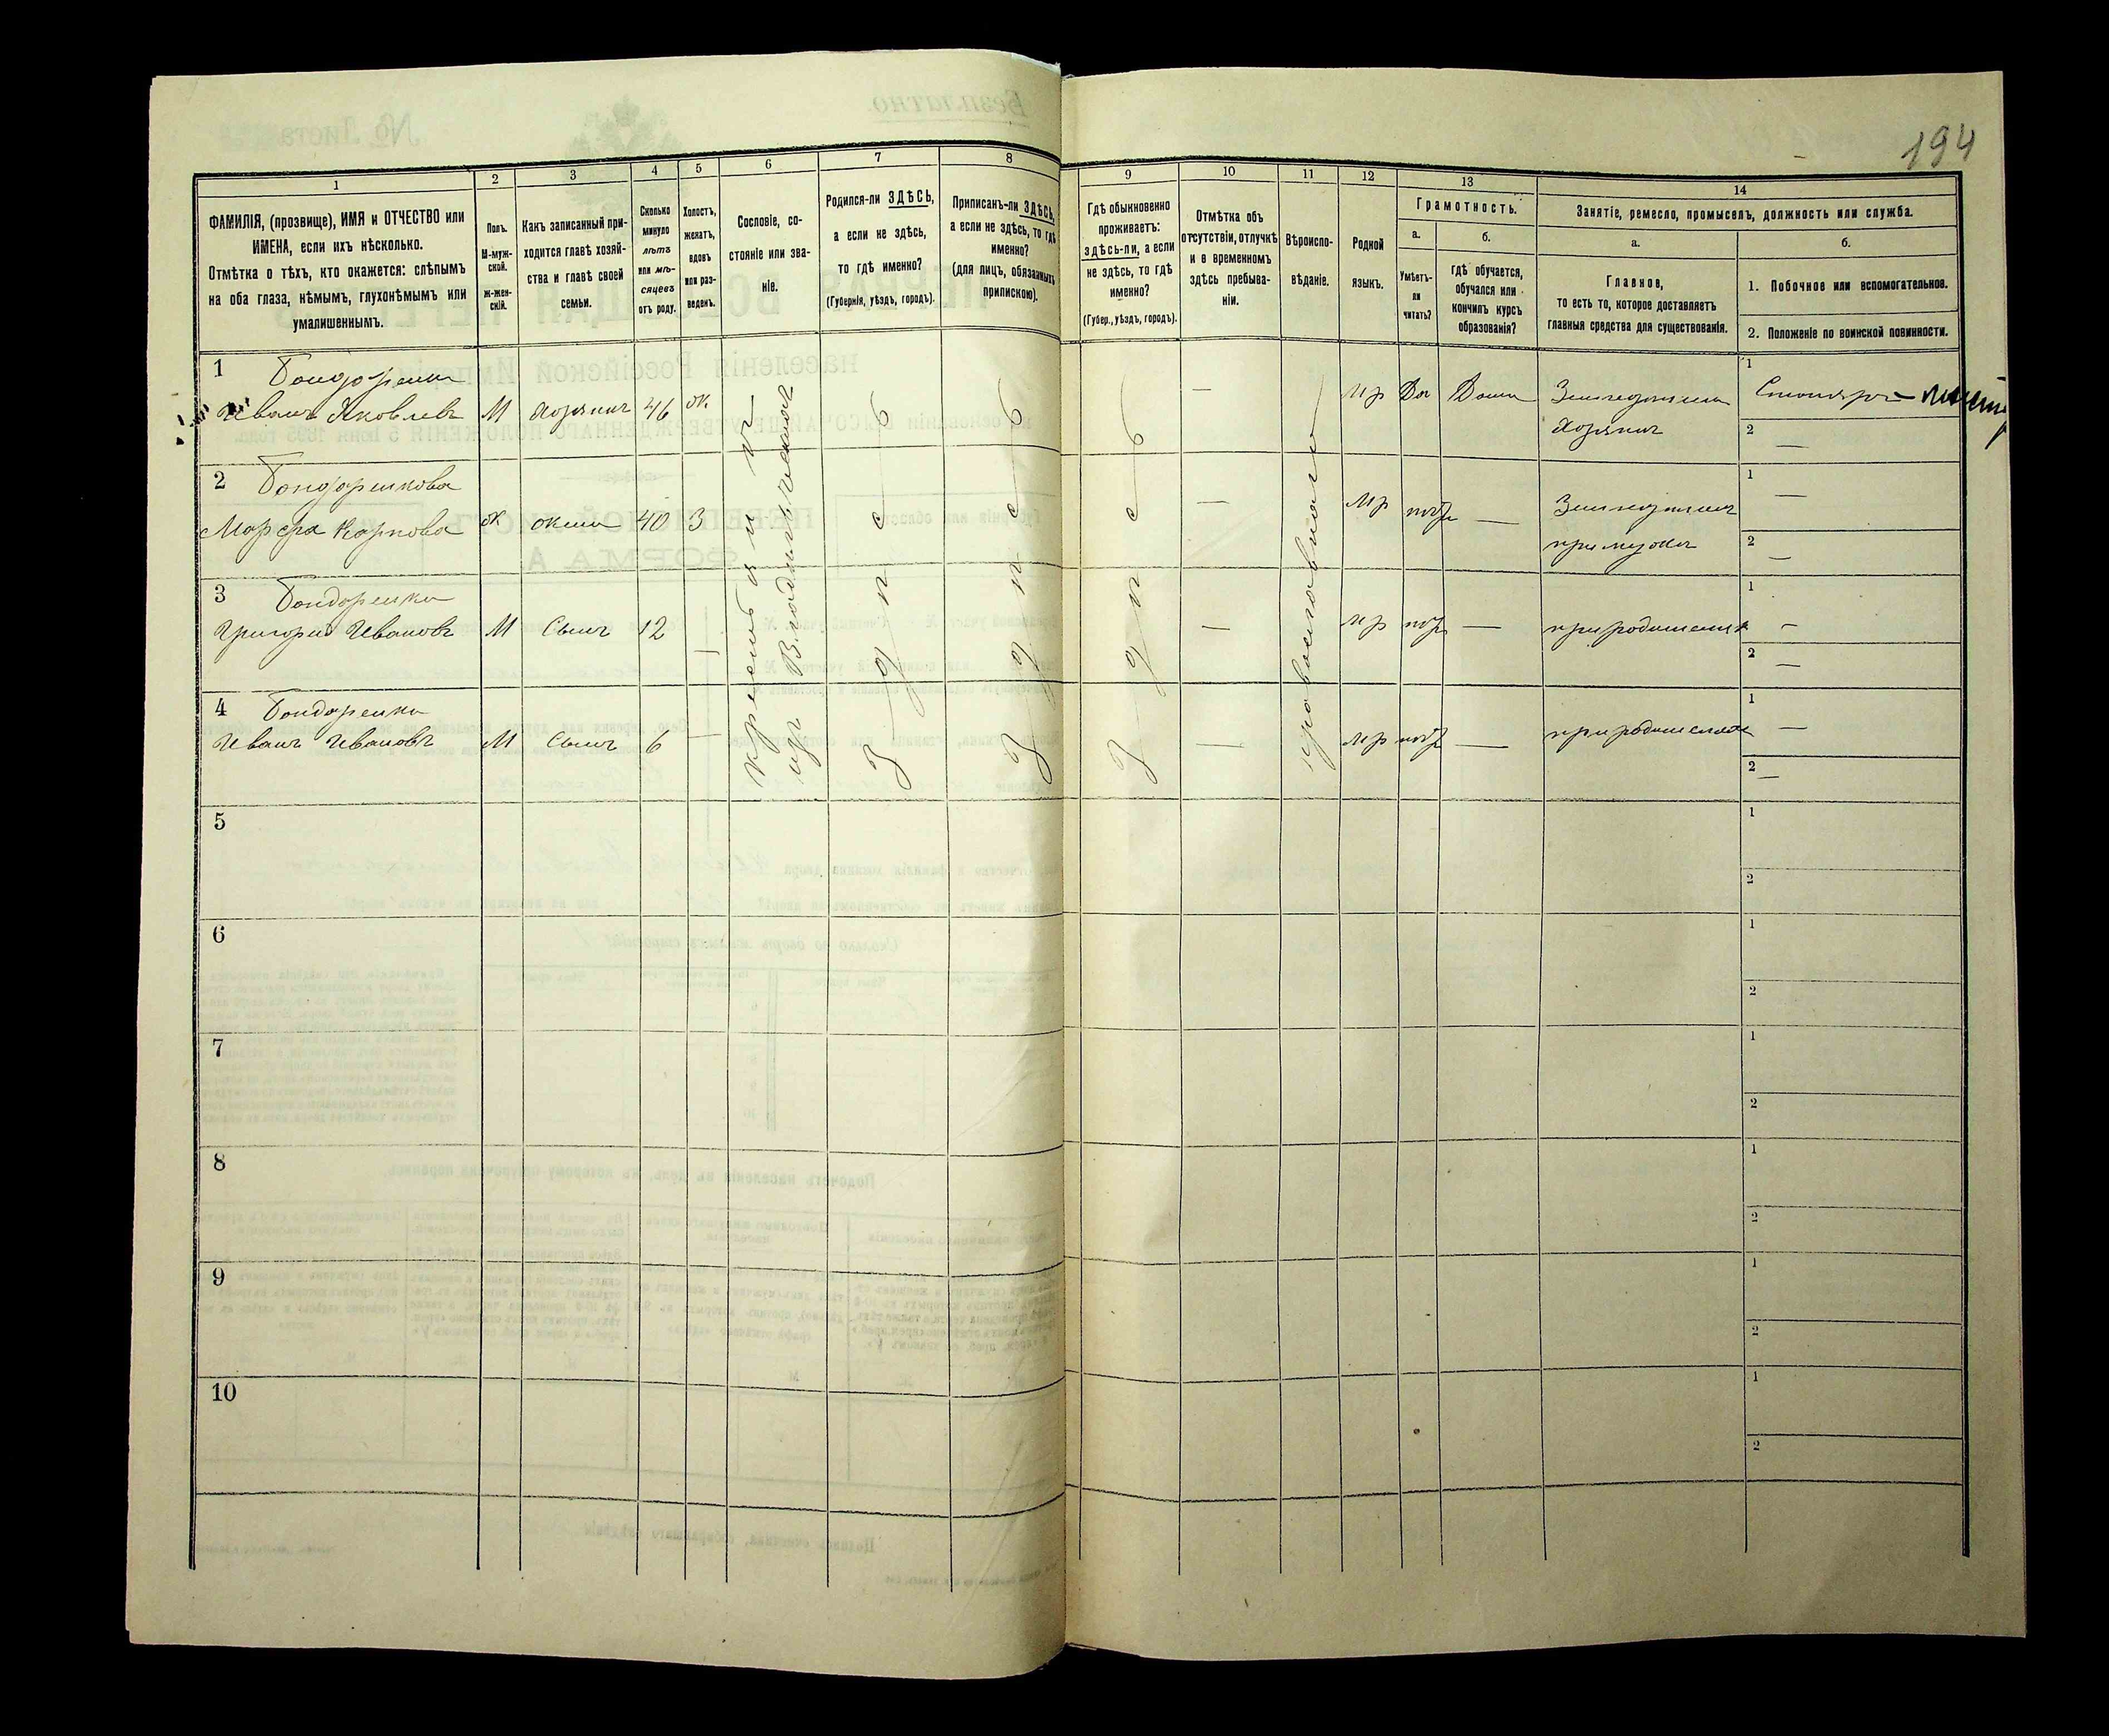 194
1
2
3
4
5
6
7
8
9
10
11
12
13
14
ФАМИЛІЯ, (прозвище), ИМЯ и ОТЧЕСТВО или
ИМЕНА, если ихъ нѣсколько.
Отмѣтка о тѣхъ, кто окажется: слѣпымъ
на оба глаза, нѣмымъ, глухонѣмымъ или
умалишеннымъ.
Полъ.
М-муж-
ской.
Ж-жен-
скій.
Какъ записанный при-
ходится главѣ хозяй-
ства и главѣ своей
семьи.
Сколько
минуло
лѣтъ
или мѣ-
сяцевъ
отъ роду.
Холостъ,
женатъ,
вдовъ
или раз-
веденъ.
Сословіе, со-
стояніе или зва-
ніе.
Родился-ли ЗДѢСЬ,
а если не здѣсь,
то гдѣ именно?
(Губернія, уѣздъ, городъ).
Приписанъ-ли ЗДѢСЬ,
а если не здѣсь, то гдѣ
именно?
(для лицъ, обязанныхъ
припискою).
Гдѣ обыкновенно
проживаетъ:
здѣсь-ли, а если
не здѣсь, то гдѣ
именно?
(Губер., уѣздъ, городъ).
Отмѣтка объ
отсутствіи, отлучкѣ
и о временномъ
здѣсь пребыва-
ніи.
Вѣроиспо-
вѣданіе.
Родной
языкъ.
Грамотность.
а.
Умѣетъ-
ли
читать?
б.
гдѣ обучается,
обучался или
кончилъ курсъ
образованія?
Занятіе, ремесло, промыселъ, должность или служба.
а.
Главное,
то есть то, которое доставляетъ
главныя средства для существованія.
б.
1. Побочное или вспомогательное.
2. Положеніе по воинской повинности.
1 Бондаренко
Иванъ Яковлевъ М хозяинъ 46 ж мр Да Дома Земледѣлецъ
хозяинъ
1 Столяръ
2 —
2 Бондаренкова
Марфа Карпова ж жена 40 З — мр негр — Земледѣлица
при мужѣ
1 —
2 —
3 Бондаренко
Григорій Ивановъ М Сынъ 12 — — мр негр — при родителяхъ
1 —
2 —
4 Бондаренко
Иванъ Ивановъ М Сынъ 6 — — мр негр — при родителяхъ
1 —
2 —
Крестьянинъ
изъ Владѣльческихъ
здѣсь
здѣсь
здѣсь
православнаго
5
1
2
6
1
2
7
1
2
8
1
2
9
1
2
10
1
2